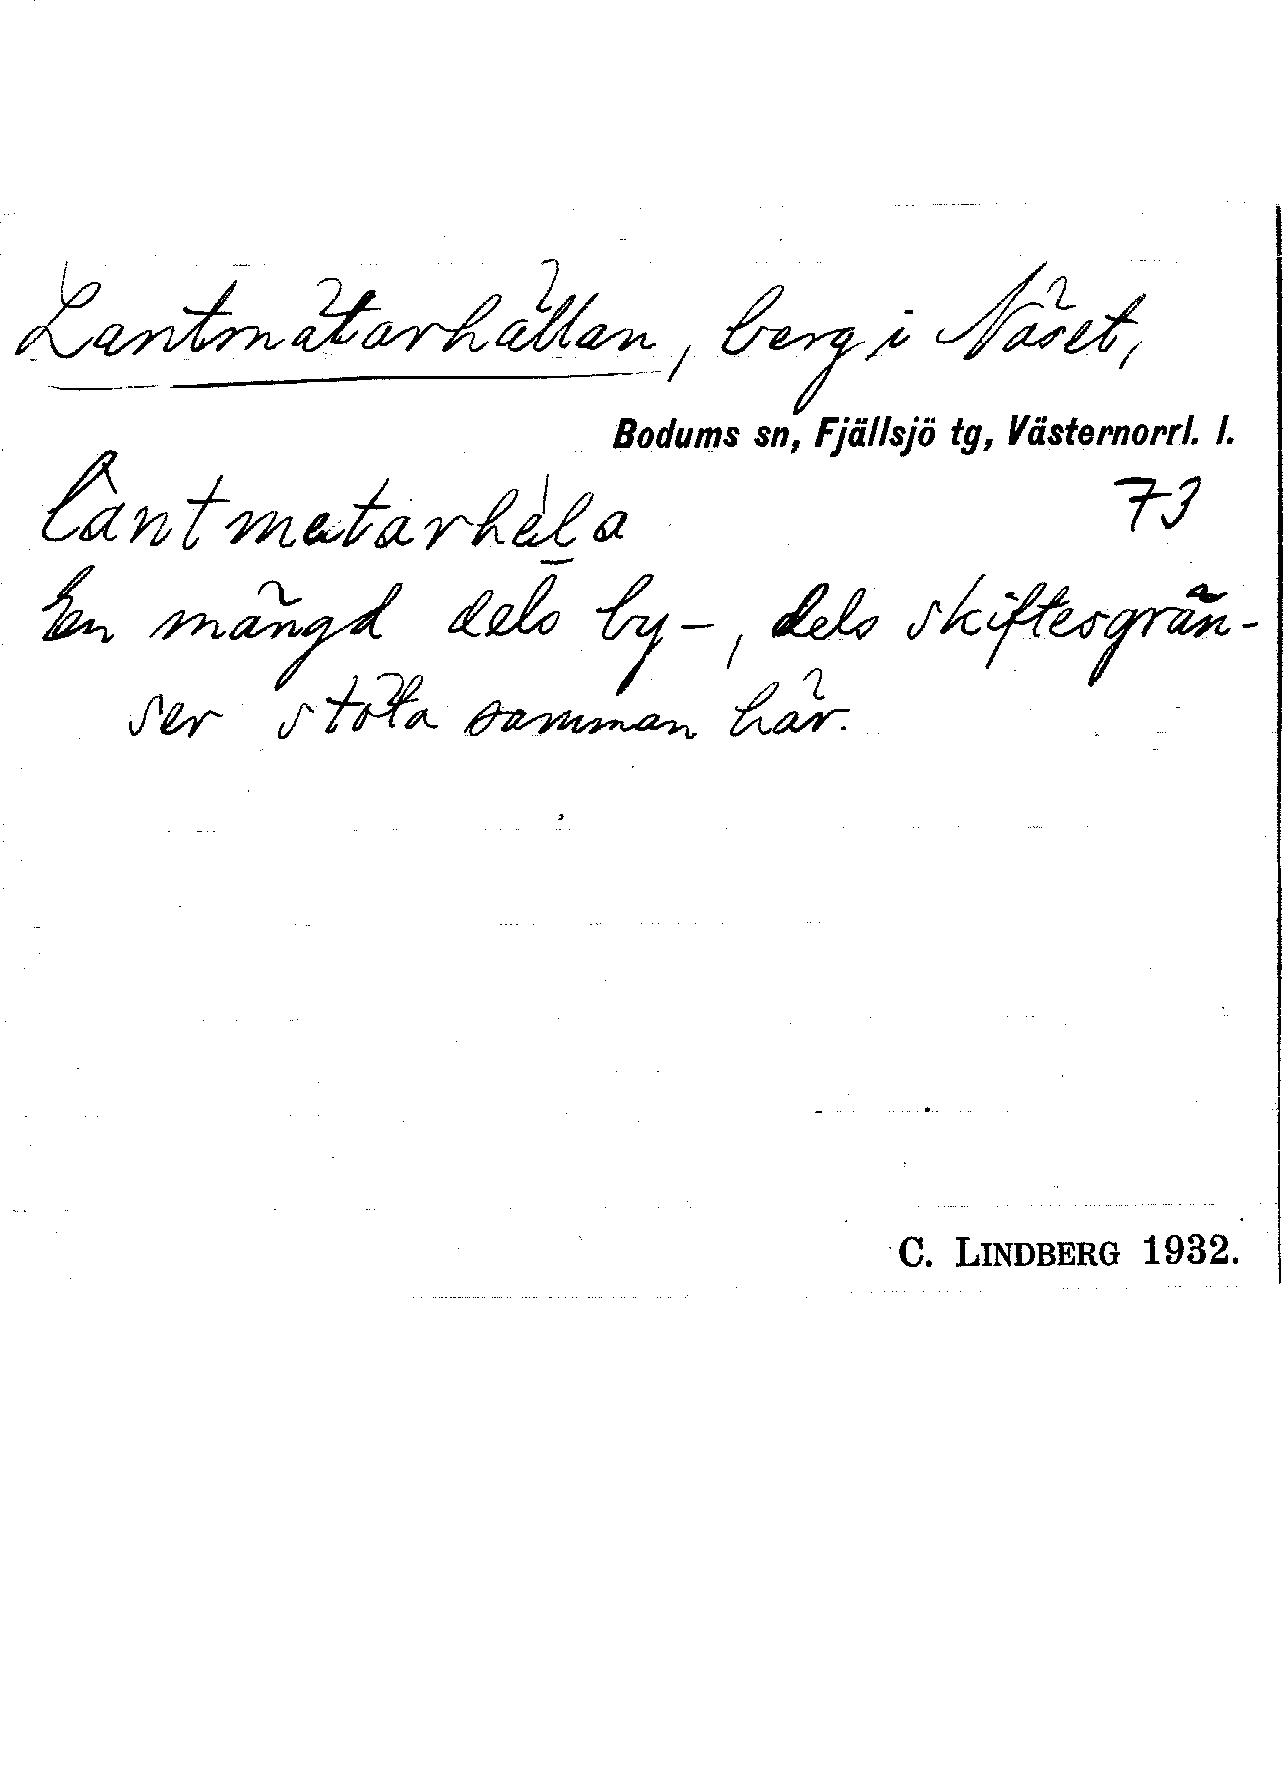 Lantmätarhällan, berg i Näset,
Bodums sn, Fjällsjö tg, Västernorrl. l.
73
En mängd dels by-, dels skiftesgrän-
ser stöta samman här.
C. LINDBERG 1932.